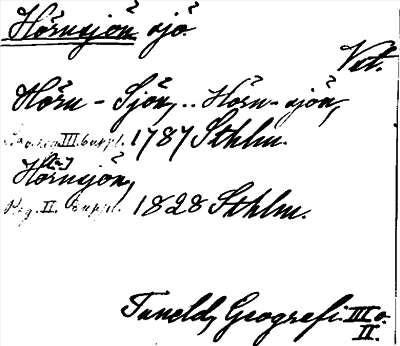 Hörnsjön sjö.
Vbt.
Hörn-Sjön,.. Hörn-sjön,
III. Suppl. 1787 Sthlm.
Hörnsjön,
Reg. II. Suppl. 1828 Sthlm.
Tuneld, Geografi. III o.
II.